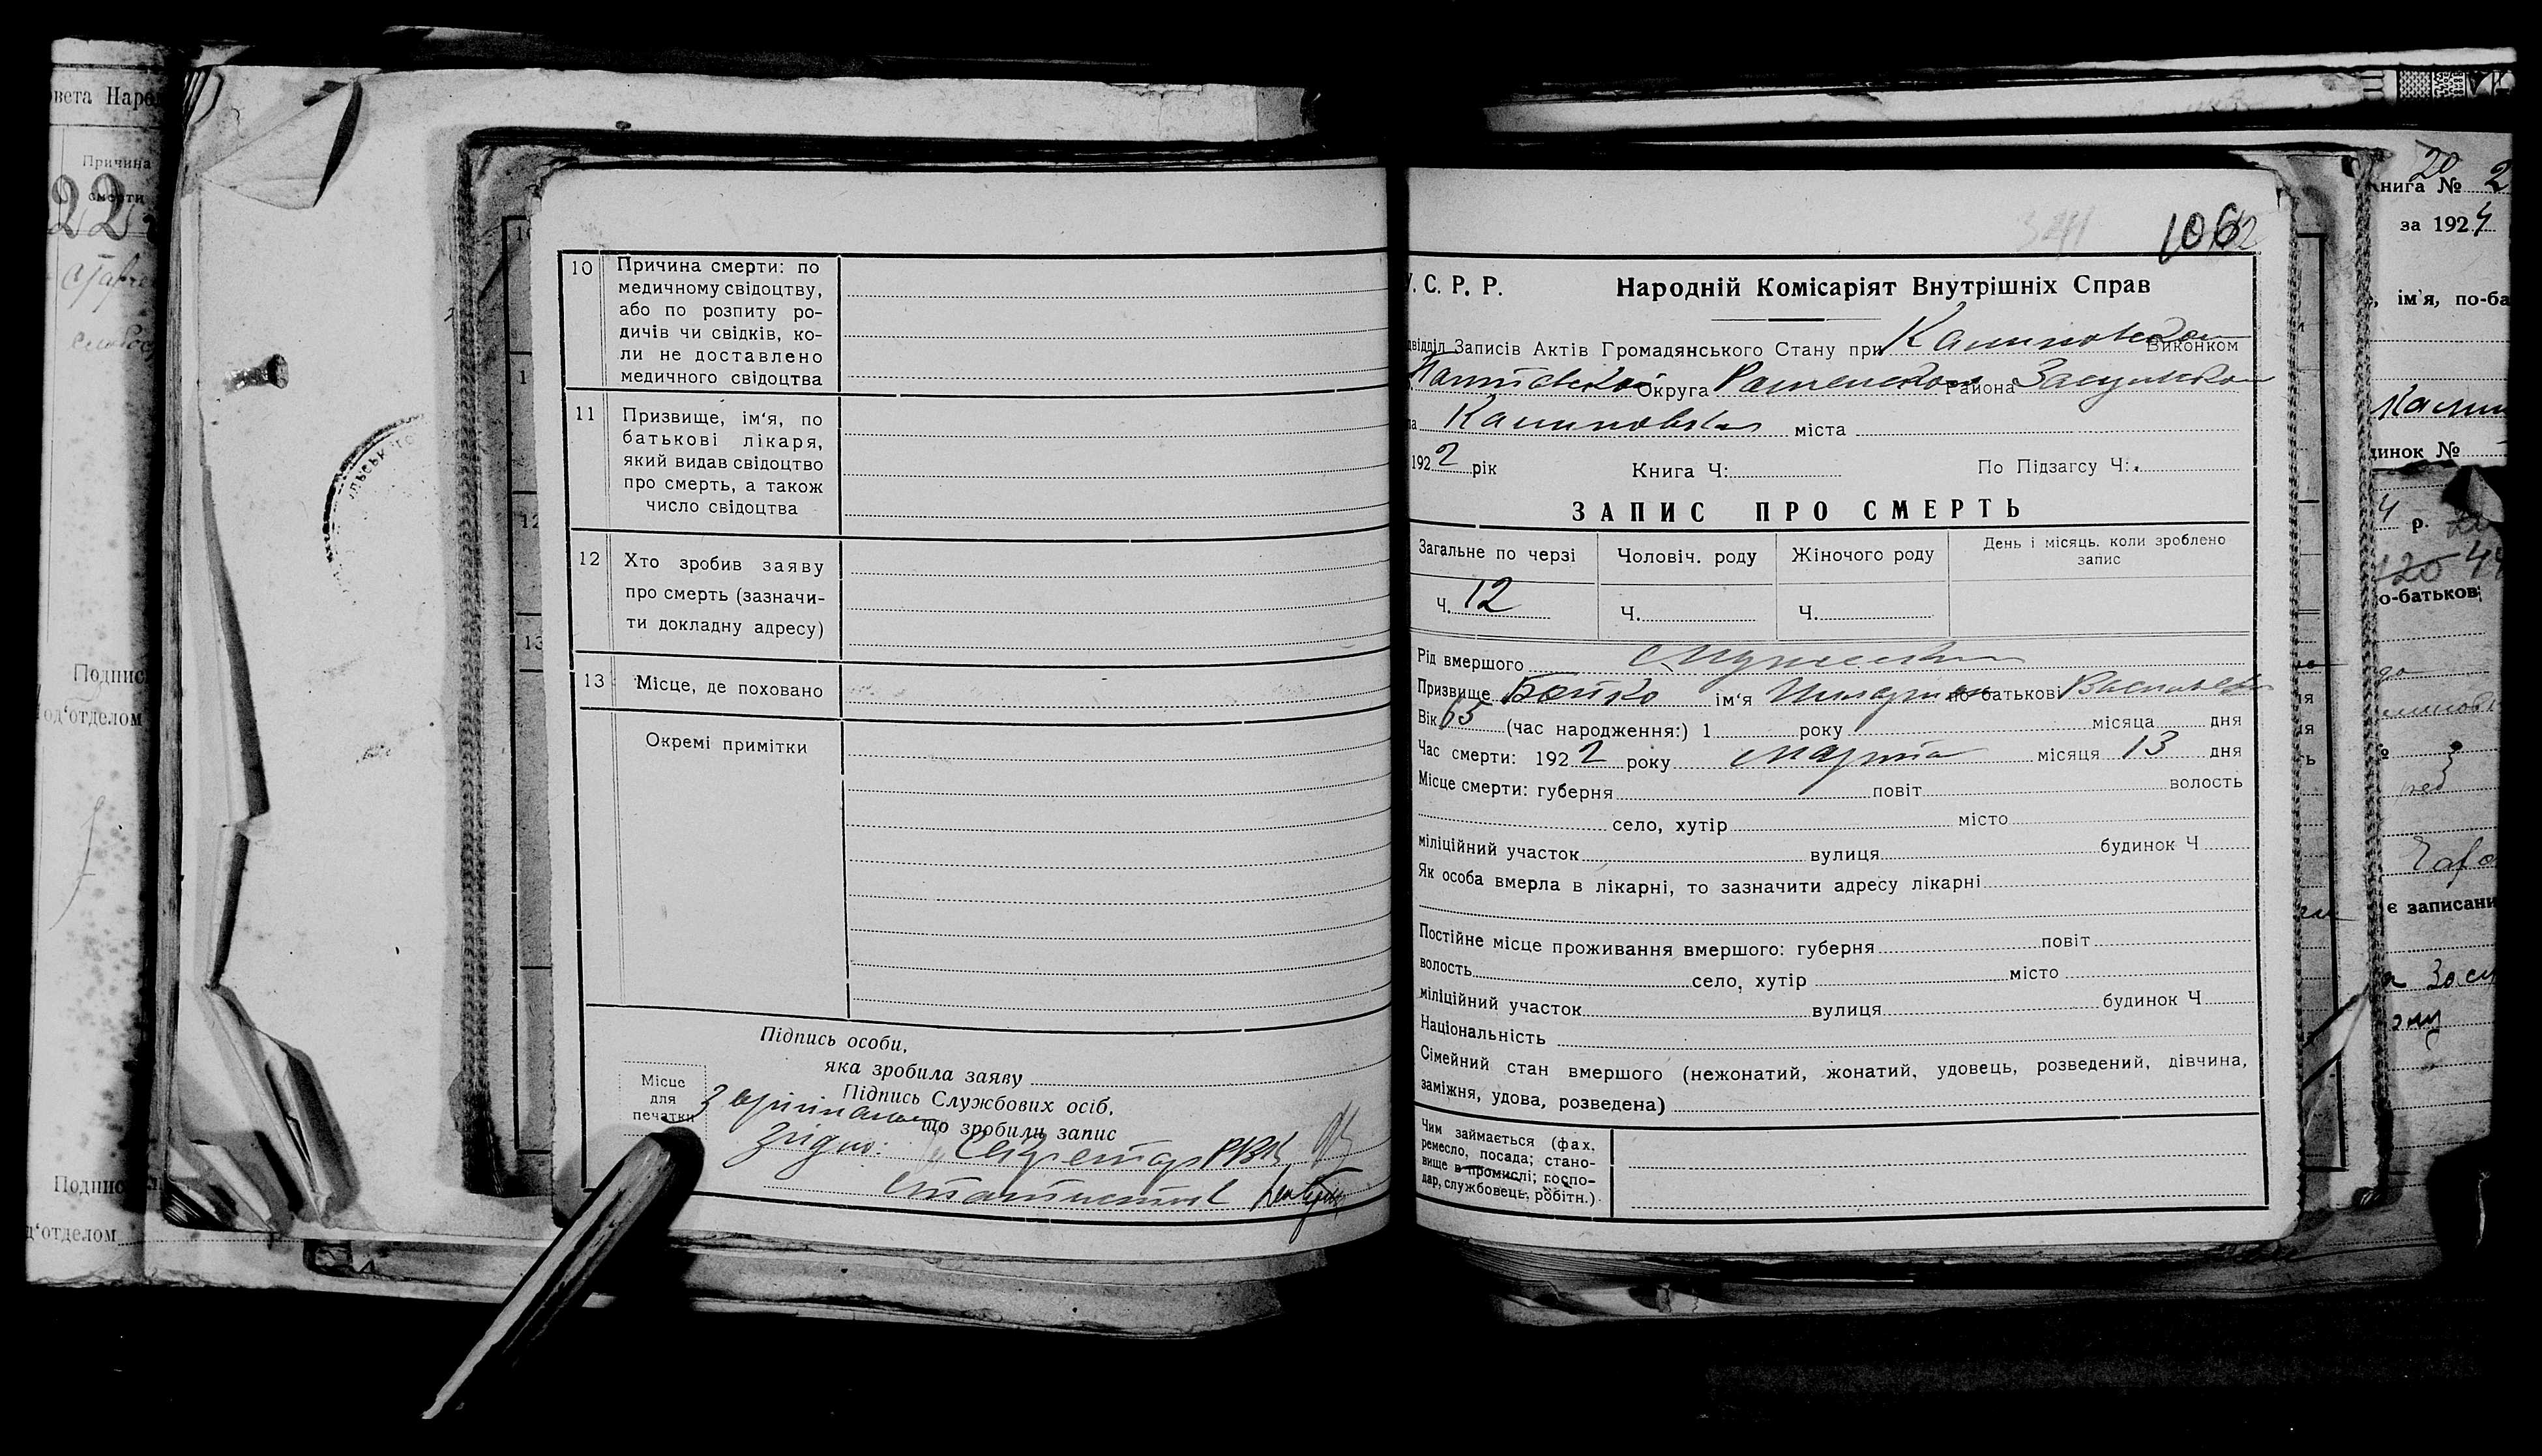 вета Наро
Причина
смерти
22
Подпис
од‘отделом
Подпис
д‘отделом
10 Причина смерти: по
медичному свідоцтву,
або по розпиту ро-
дичів чи свідків, ко-
ли не доставлено
медичного свідоцтва
11 Призвище, ім‘я, по
батькові лікаря,
який видав свідоцтво
про смерть, а також
число свідоцтва
12 Хто зробив заяву
про смерть (зазначи-
ти докладну адресу)
13 Місце, де поховано
Окремі примітки
Підпись особи,
яка зробила заяву
Підпись Службових осіб,
що зробили запис
Місце
для
печатки
З оригіналом
згідно: Секретар РВК
Статистик
1062
У. С. Р. Р. Народній Комісаріят Внутрішніх Справ
двідділ Записів Актів Громадянського Стану при Калиновском Виконком
Округа Роменского Района Засульском
Калиновка міста
1922 рік Книга Ч: По Підзагсу Ч:
ЗАПИС ПРО СМЕРТЬ
Загальне по черзі Чоловіч. роду Жіночого роду День і місяць. коли зроблено
запис
Ч. 12 Ч. Ч.
Рід вмершого
Призвище Бойко ім‘я по батькові
Вік 65 (час народження:) 1 року місяца дня
Час смерти: 1922 року марта місяця 13 дня
Місце смерти: губерня повіт волость
село, хутір місто
міліційний участок вулиця будинок Ч
Як особа вмерла в лікарні, то зазначити адресу лікарні
Постійне місце проживання вмершого: губерня повіт
волость село, хутір місто
міліційний участок вулиця будинок Ч
Національність
Сімейний стан вмершого (нежонатий, жонатий, удовець, розведений, дівчина,
заміжня, удова, розведена)
Чим займається (фах.
ремесло, посада; стано-
вище в промислі; госпо-
дар, службовець, робітн.)
20
книга № 2
за 1924
ім‘я, по-ба
динок №
4 р.
120 44
о-батьков
є записани